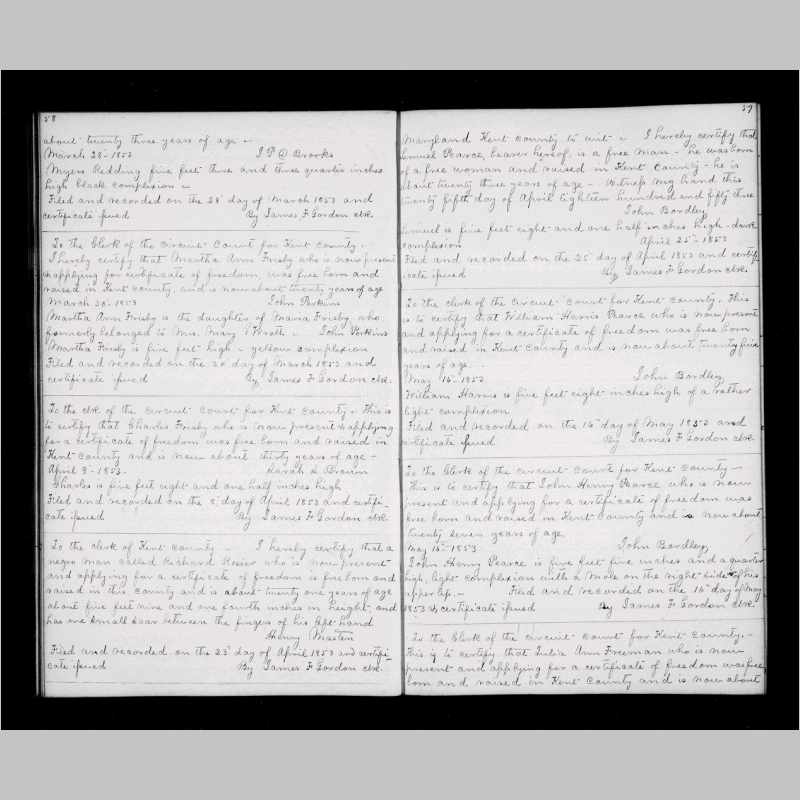 58
about twenty three years of age -
March 28- 1853 I P @ Brooks
Myers Redding five feet three and three quarter inches
high black complexion -
Filed and recorded on the 28 day of March 1853 and
certificate issued By James F Gordon clk.
To the Clerk of the Circuit Court for Kent County.
I hereby certify that Martha Ann Frisby who is now present
& applying for certificate of freedom was free born and
raised in Kent County, and is now about twenty years of age
March 30. 1853 John Perkins
Martha Ann Frisby is the daughter of Maria Frisby who
formerly belonged to Mrs. Mary - John Perkins
Martha Frisby is five feet high - yellow complexion
Filed and recorded on the 30 day of March 1853 and
certificate issued By James F Gordon clk.
To the clk of the Circuit Court for Kent County - This is
to certify that Charles Frisby who is now present & applying
for a certificate of freedom was free born and raised in
Kent County and is now about thirty years of age -
April 8 - 1853. Sarah S Brown
Charles is five feet eight and one half inches high
Filed and recorded on the 8 day of April 1853 and certifi-
cate issued By James F Gordon clk.
To the clerk of Kent County - I hereby certify that a
negro man called Richard Rosier who is now present
and applying for a certificate of freedom is free born and
raised in this county and is about twenty one years of age
about five feet nine and one fourth inches in height, and
has one small scar between the fingers of his left hand
Henry Masten
Filed and recorded on the 23 day of April 1853 and certifi-
cate issued By James F Gordon clk.
59
Maryland Kent County to wit - I hereby certify that
Samuel Pearce, bearer hereof is a free man - he was born
of a free woman and raised in Kent County - he is
about twenty three years of age - Witness my hand this
twenty fifth day of April Eighteen hundred and fifty three
John Bordley
Samuel is five feet eight and one half inches high - dark
complexion April 25- 1853
Filed and recorded on the 25 day of April 1853 and certif-
icate issued By James F Gordon clk.
To the clerk of the Circuit Court for Kent County. This
is to certify that William Harris Pearce who is now present
and applying for a certificate of freedom was free born
and raised in Kent County and is now about twenty five
years of age.
May 16- 1853 John Bordley
William Harris is five feet eight inches high of a rather
light complexion
Filed and recorded on the 16 day of May 1853 and
certificate issued By James F Gordon clk
To the Clerk of the Circuit Court for Kent County -
This is to certify that John Henry Pearce who is now
present and applying for a certificate of freedom was
free born and raised in Kent County and is now about
twenty seven years of age
May 16- 1853 John Bordley
John Henry Pearce is five feet five inches and a quarter
high, light complexion with a mole on the right side of his
upper lip. - Filed and recorded on the 16 day of May
1853 & certificate issued By James F Gordon clk.
To the Clerk of the Circuit Court for Kent County. -
This is to certify that Julia Ann Freeman who is now
present and applying for a certificate of freedom was free
born and raised in Kent County and is now about